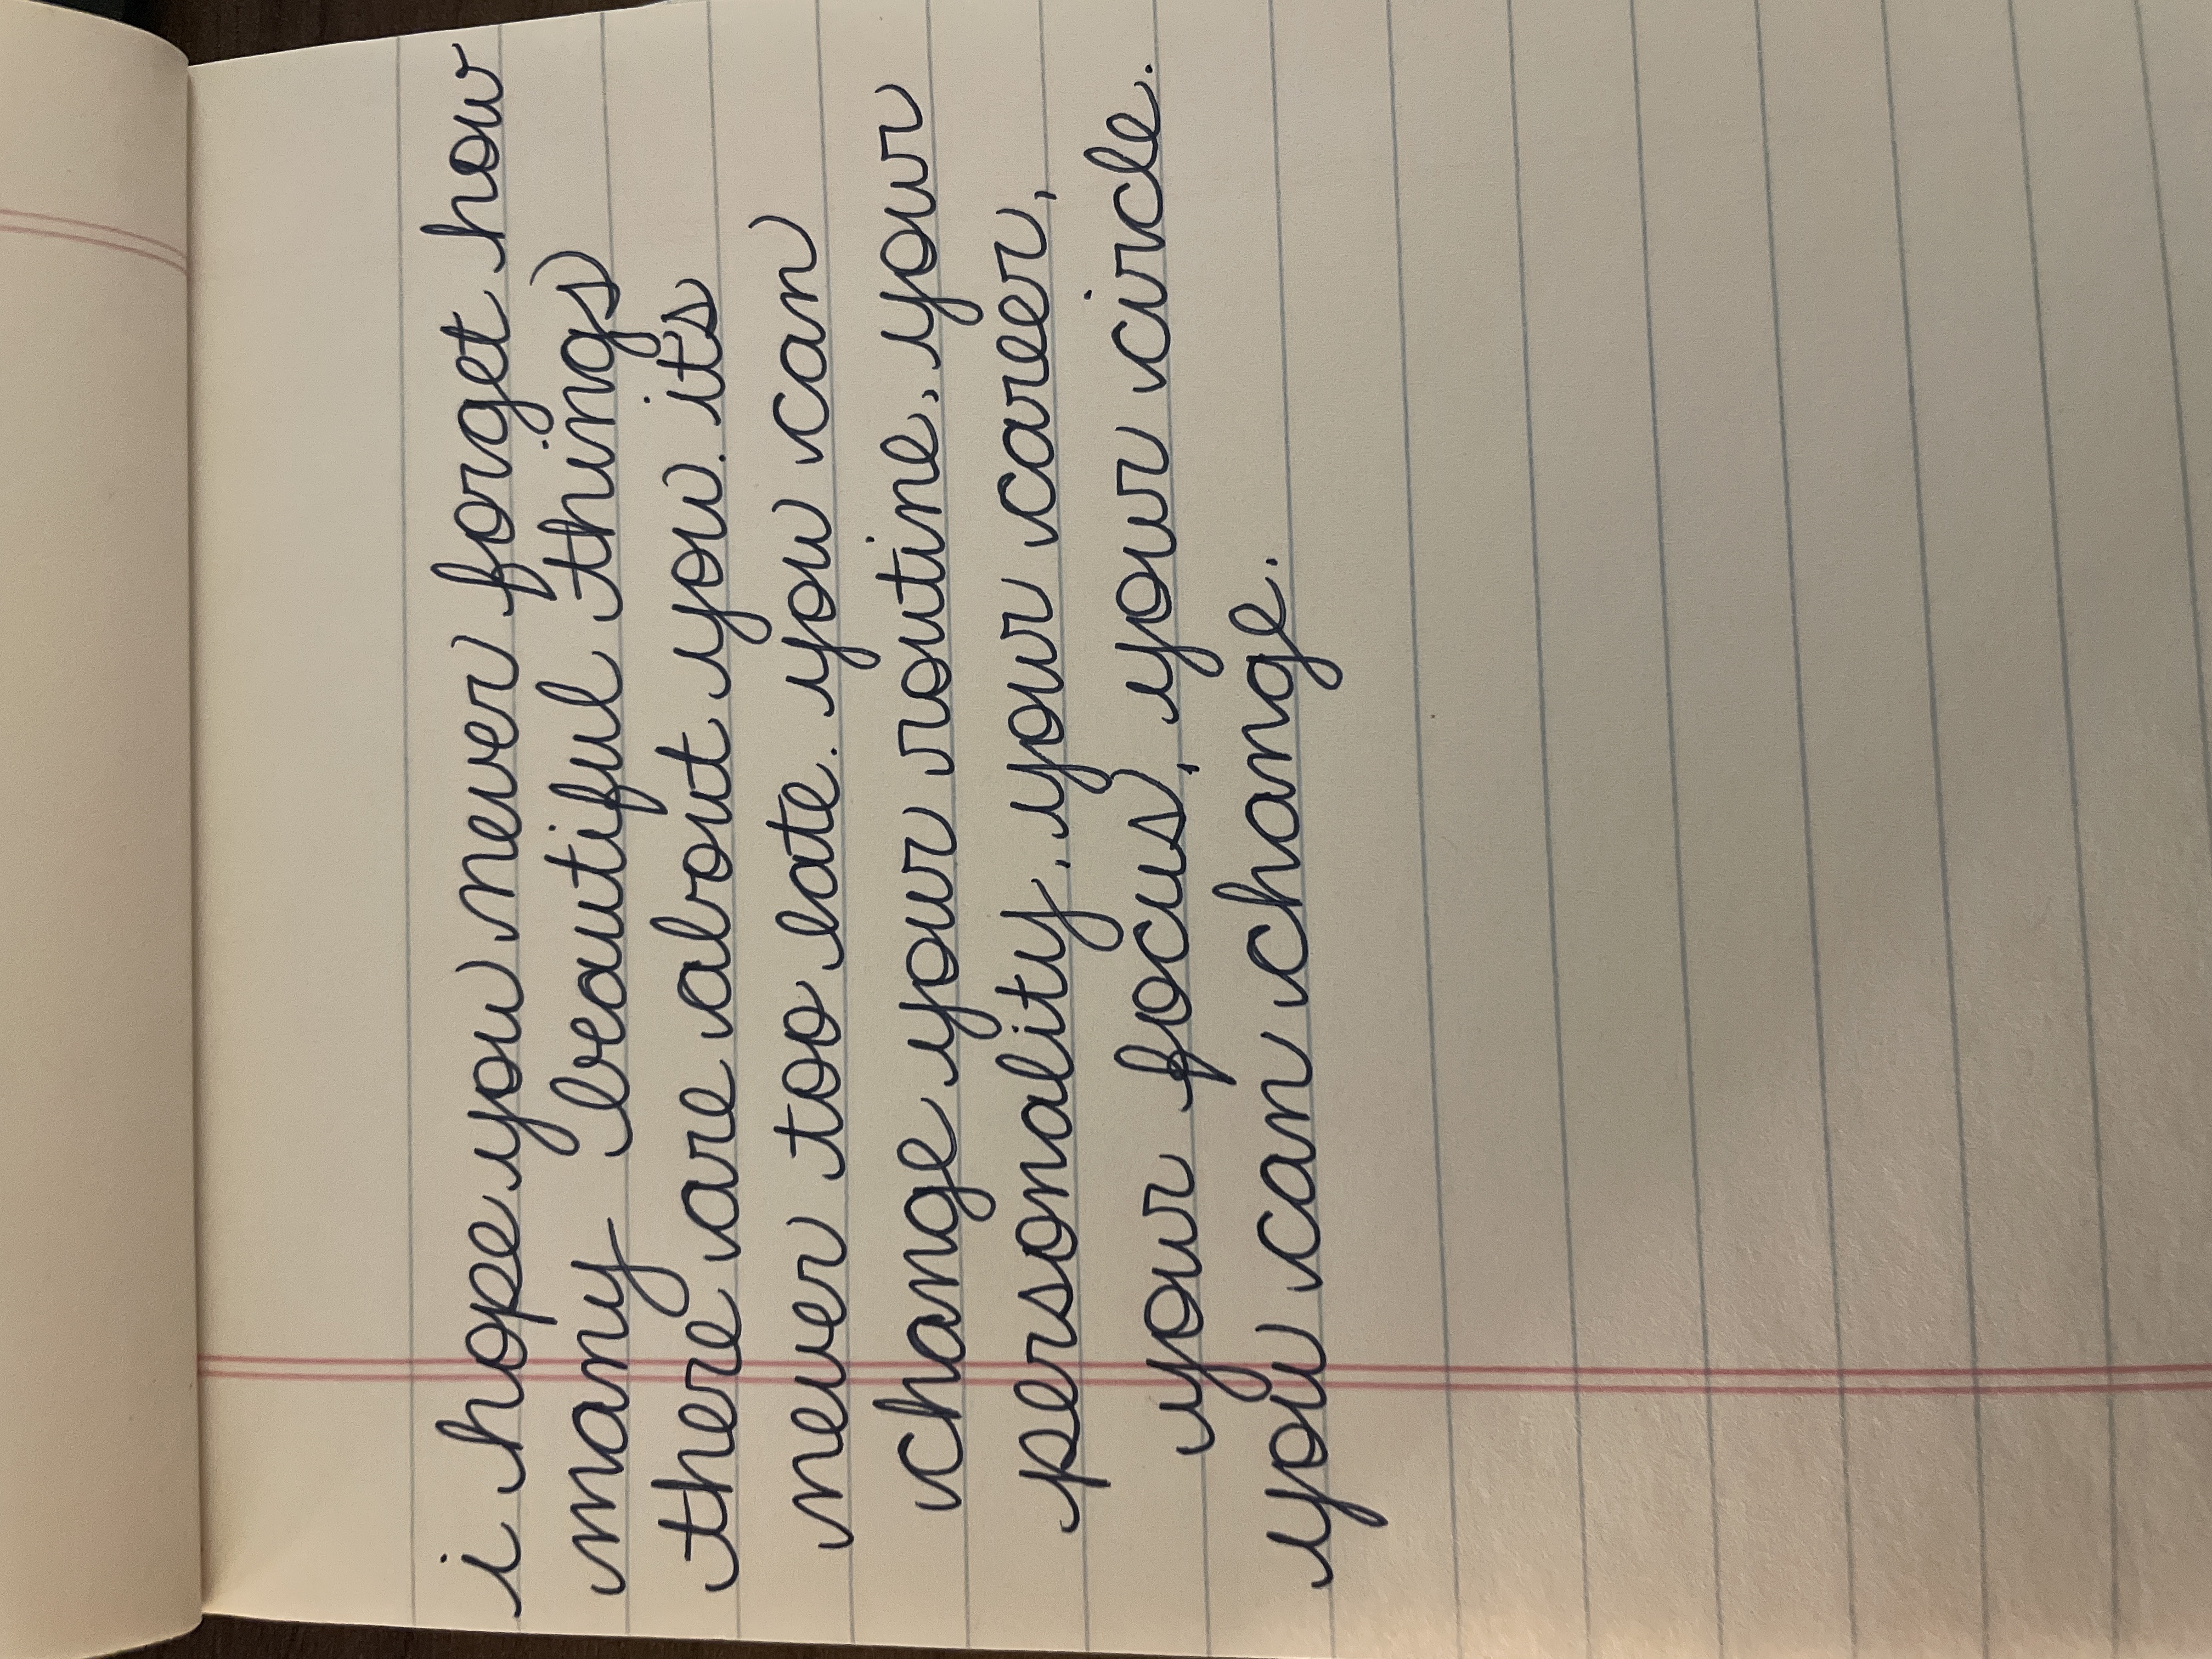 i hope you never forget how
many beautiful things
there are about you. it's
never too late. you can
change your routine, your
personality, your career,
your focus, your circle.
you can change.